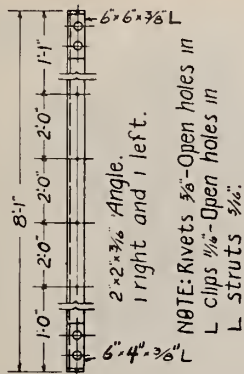 6"×6"×3/8" L
8'-1"
1'-1"
2'-0"
2'-0"
2'-0"
1'-0"
2"×2"×3/16" Angle.
1 right and 1 left.
6"×4"×3/8" L
NOTE: Rivets 5/8"-Open holes in
L clips 11/16"-Open holes in
L struts 5/16".